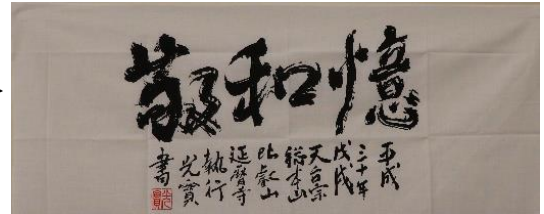 憶和敬
平成
三十年
戊戌
天台宗
総本山
比叡山
延暦寺
執行
光寶
書